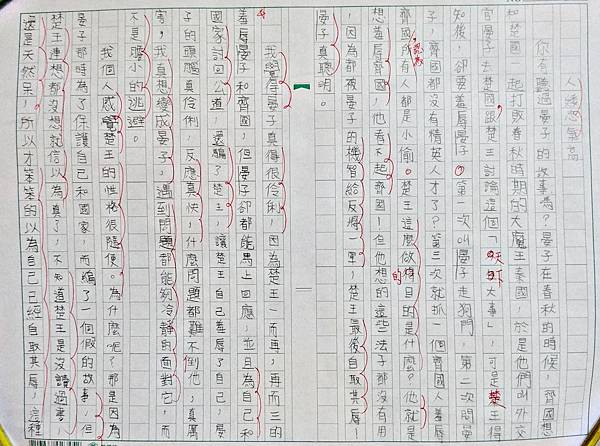 人 ，
你有聽過晏子的故事嗎？晏子在春秋的時候，齊國想
和楚國一起打敗春秋時期的大魔王秦國，於是他們叫外交
官晏子去楚國跟楚王討論這個「天下大事」，可是楚王得
知後，卻要羞辱晏子。第一次叫晏子走狗門，第二次問晏
子，齊國都沒有精英人才了？第三次就抓一個齊國人羞辱
齊國所有人都是小偷。楚王這麼做的目的是什麼？他就是
想羞辱齊國，他看不起齊國！但他想的這些法子都沒有用
，因為都被晏子的機智給反將一軍，楚王最後自取其辱，
晏子真聰明。
我覺得晏子真得很伶俐，因為楚王一而再，再而三的
羞辱晏子和齊國，但晏子卻都能馬上回應，並且為自己和
國家討回公道，還騙了楚王，讓楚王自己羞辱了自己，晏
子的頭腦真伶俐，反應真快，什麼問題都難不倒他，真厲
害，我真想變成晏子，遇到問題都能夠冷靜的面對它，而
不是膽小的逃避。
我個人感覺楚王的性格很隨便。為什麼呢？那是因為
晏子那時為了保護自己和國家，而編了一個假的故事，但
楚王連想都沒想就信以為真了，不知道楚王是沒讀過書，
還是天然呆，所以才笨笨的以為自己已經自取其辱，這種